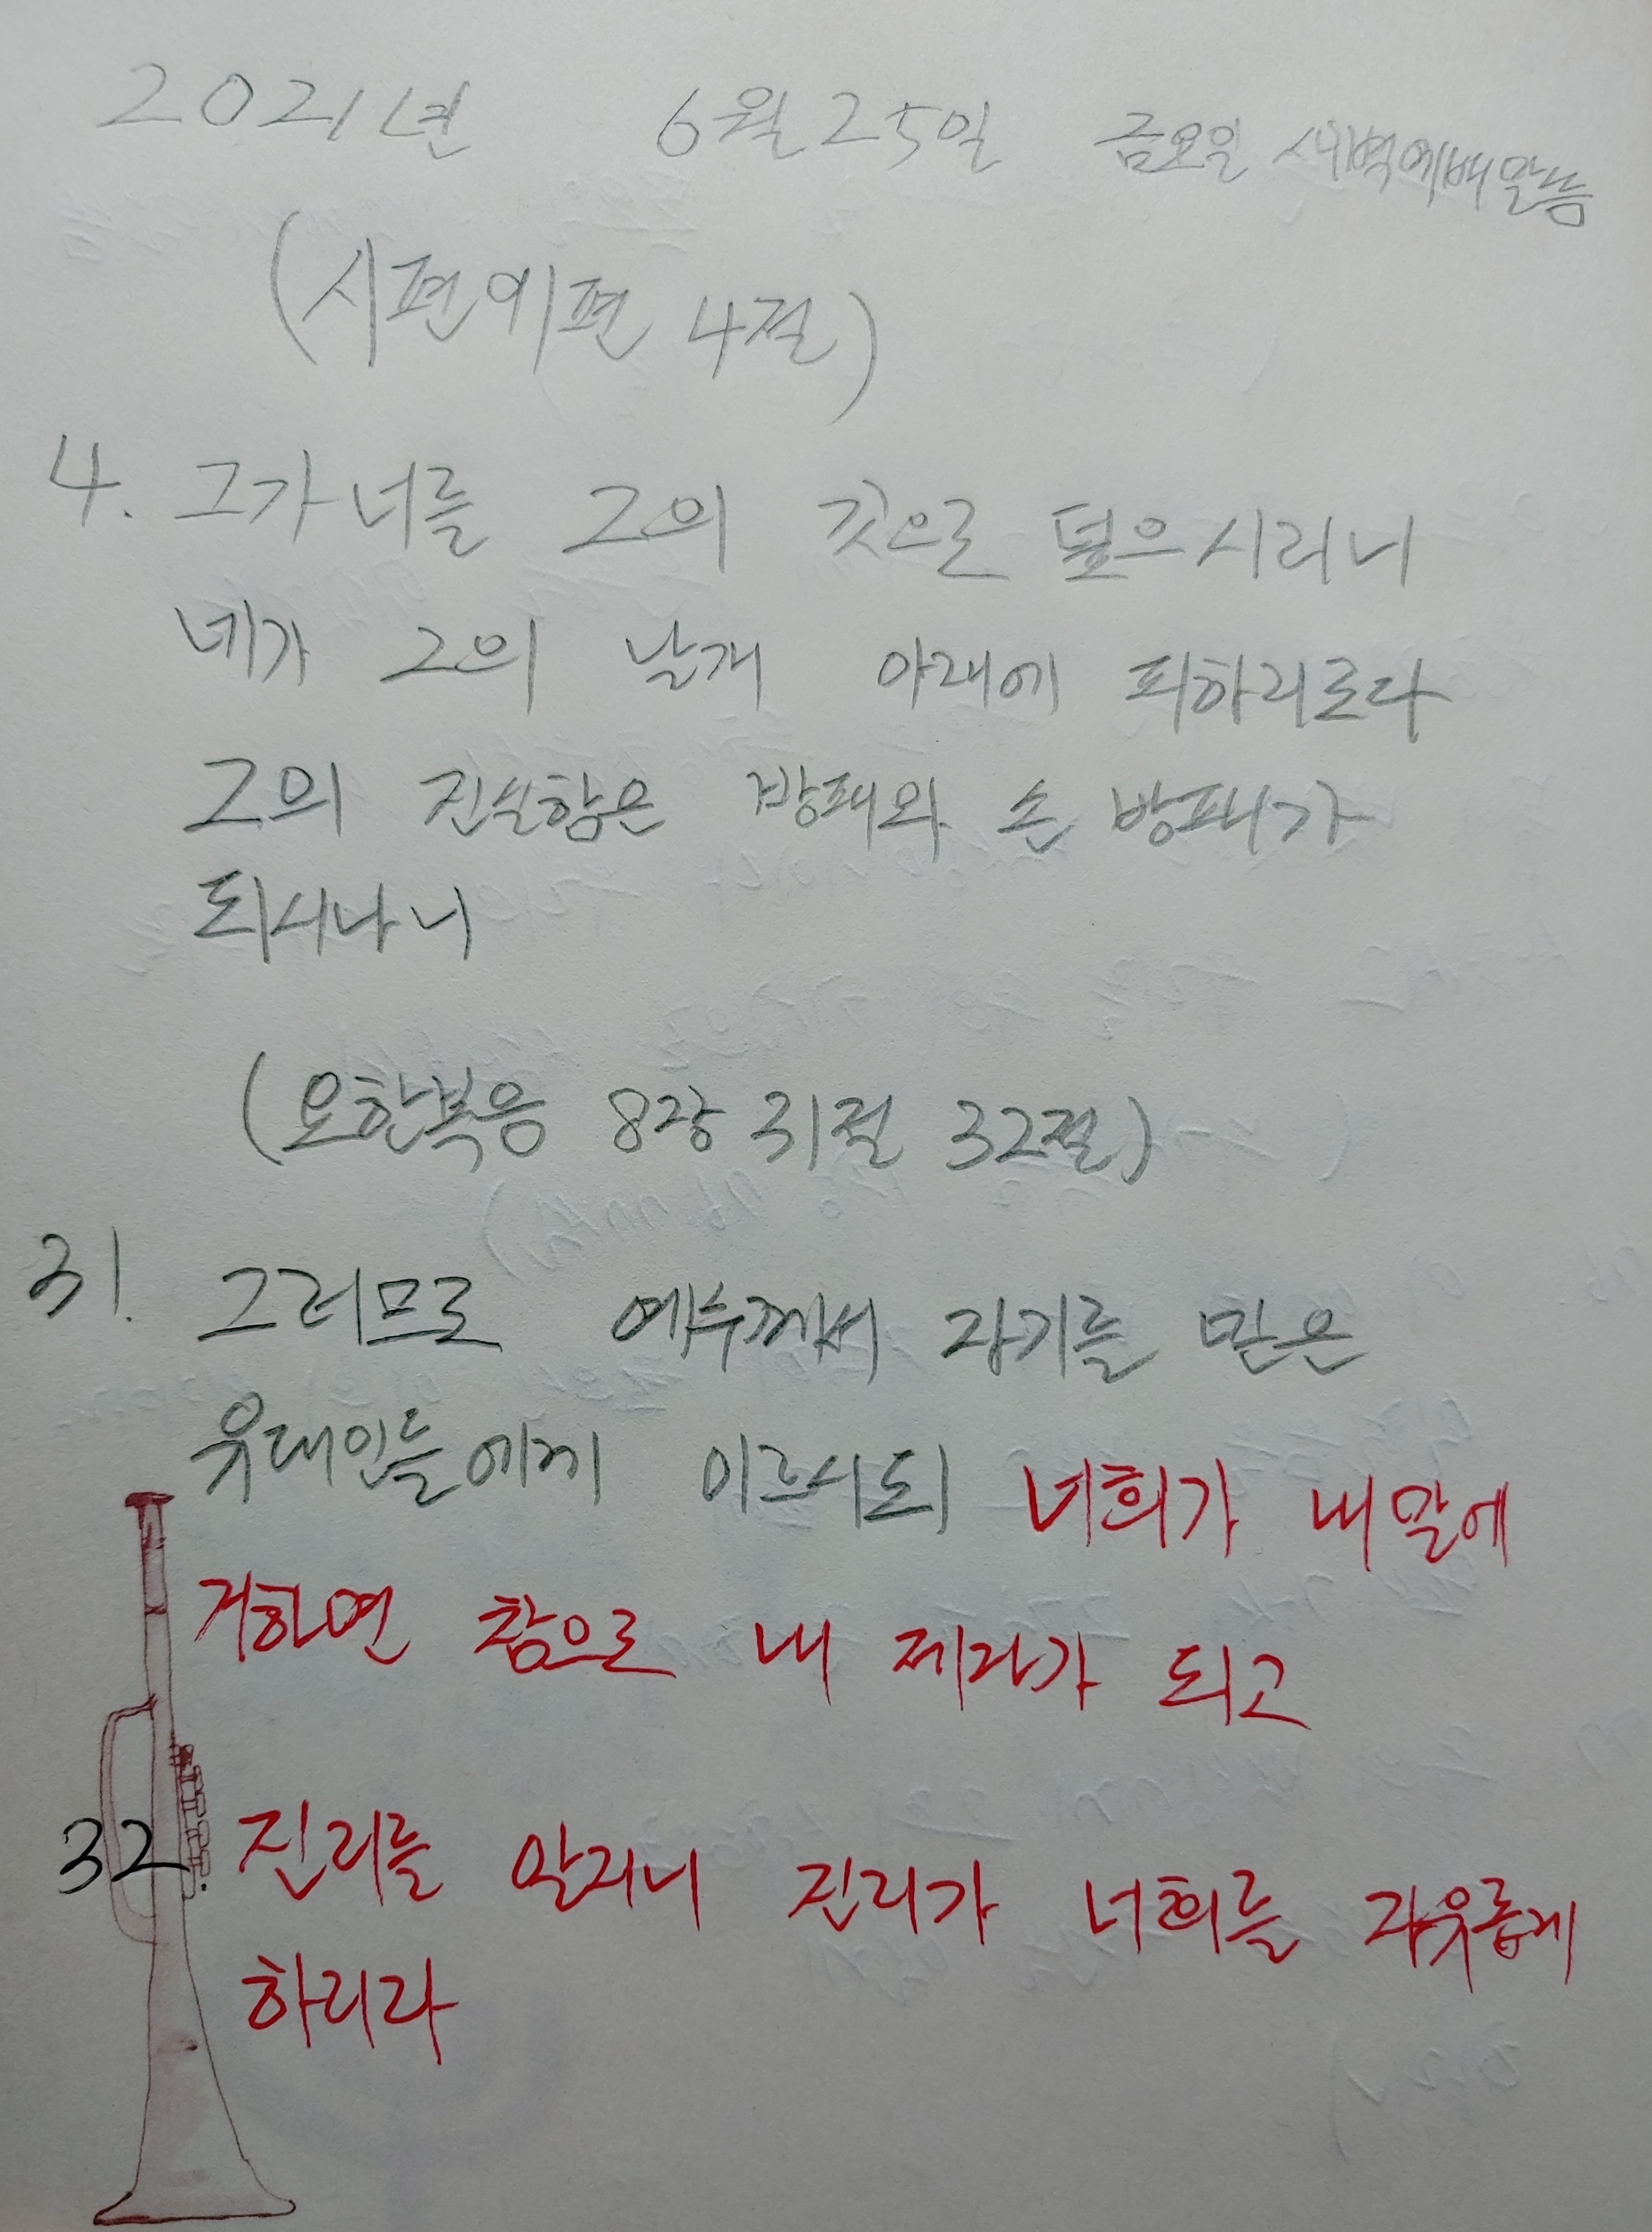 2021년 6월 25일 금요일 새벽예배말씀
(시편 91편 4절)
4. 그가 너를 그의 깃으로 덮으시리니
네가 그의 날개 아래에 피하리로다
그의 진실함은 방패와 손 방패가
되시나니
(요한복음 8장 31절 32절)
31. 그러므로 예수께서 자기를 믿은
유대인들에게 이르시되 너희가 내 말에
거하면 참으로 내 제자가 되고
32. 진리를 알지니 진리가 너희를 자유롭게
하리라